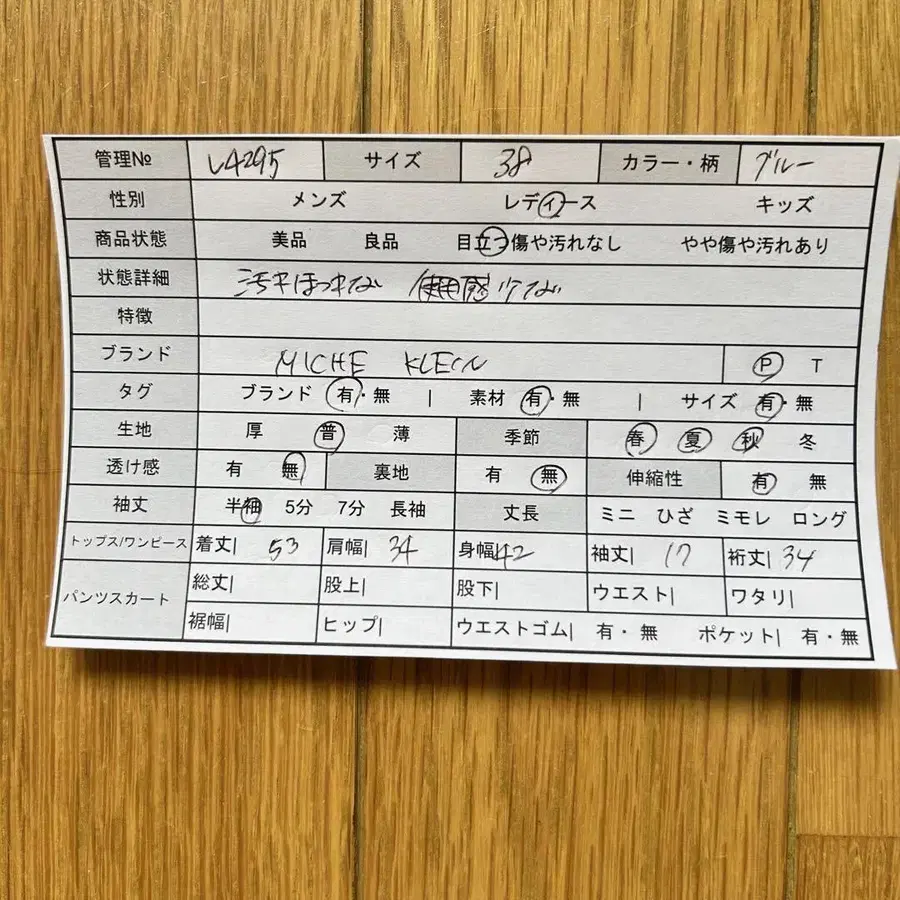 管理№ V4295 サイズ 38 カラー・柄 ブルー
性別 メンズ レディース キッズ
商品状態 美品 良品 目立つ傷や汚れなし やや傷や汚れあり
状態詳細 汚れほつれなし 使用感少ない
特徴
ブランド MICHE KLEIN P T
タグ ブランド 有・無 | 素材 有・無 | サイズ 有・無
生地 厚 普 薄 季節 春 夏 秋 冬
透け感 有 無 裏地 有 無 伸縮性 有 無
袖丈 半袖 5分 7分 長袖 丈長 ミニ ひざ ミモレ ロング
トップス/ワンピース 着丈| 53 肩幅| 34 身幅 42 袖丈| 17 裄丈| 34
パンツスカート 総丈| 股上| 股下| ウエスト| ワタリ|
裾幅| ヒップ| ウエストゴム| 有・無 ポケット| 有・無